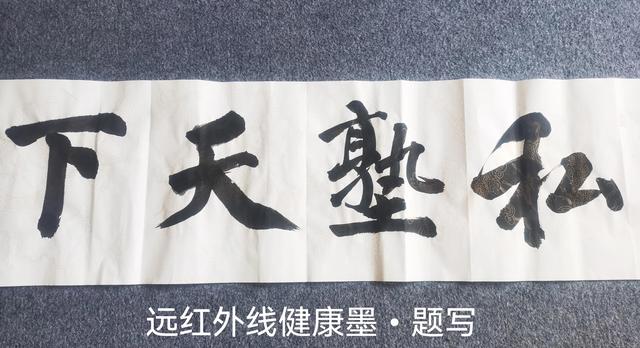 私塾天下
远红外线健康墨·题写